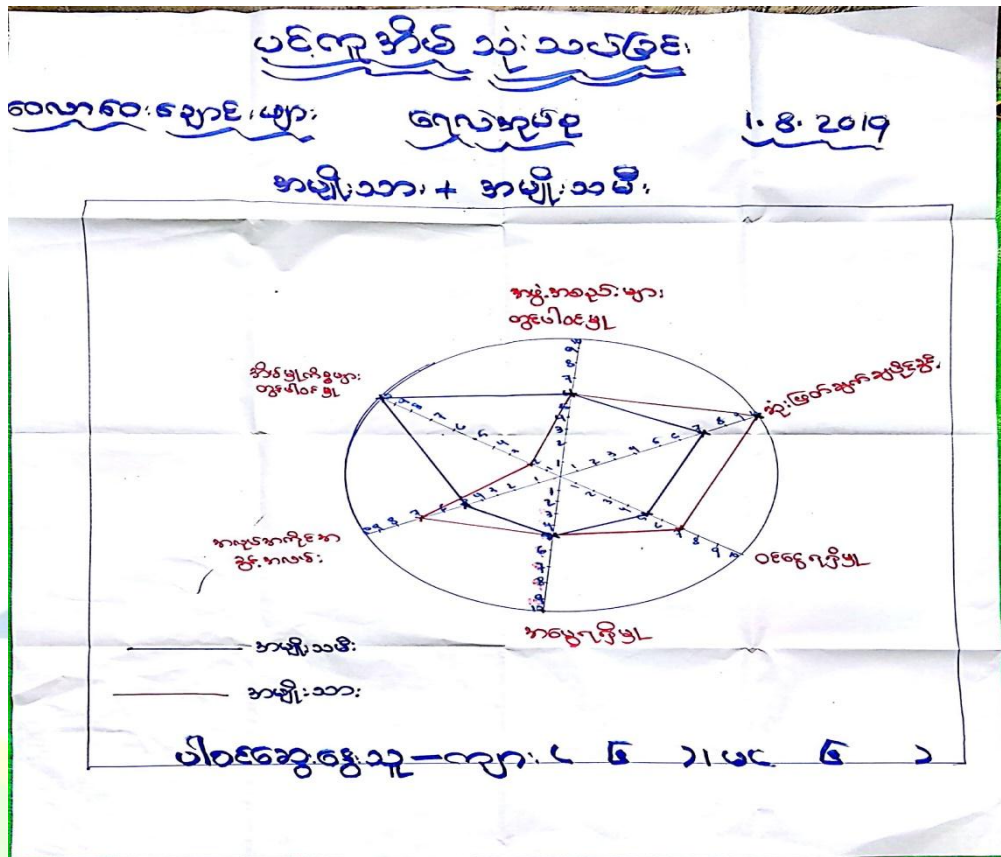 ပင့်ကူအိမ် သုံးသပ်ခြင်း
ဝေလာဝေးချောင်းများ ရေလဲအုပ်စု 1.8.2019
အမျိုးသား + အမျိုးသမီး
အဖွဲ့အစည်းများ
တွင်ပါဝင်မှု
အိမ်မှုကိစ္စများ
တွင်ပါဝင်မှု
ဆုံးဖြတ်ချက်ချပိုင်ခွင့်
အလုပ်အကိုင်အ
ခွင့်အလမ်း
ဝင်ငွေရရှိမှု
အမွေရရှိမှု
အမျိုးသမီး
အမျိုးသား
ပါဝင်ဆွေးနွေးသူ - ကျား ( ၆ ) ၊ မ ( ၆ )